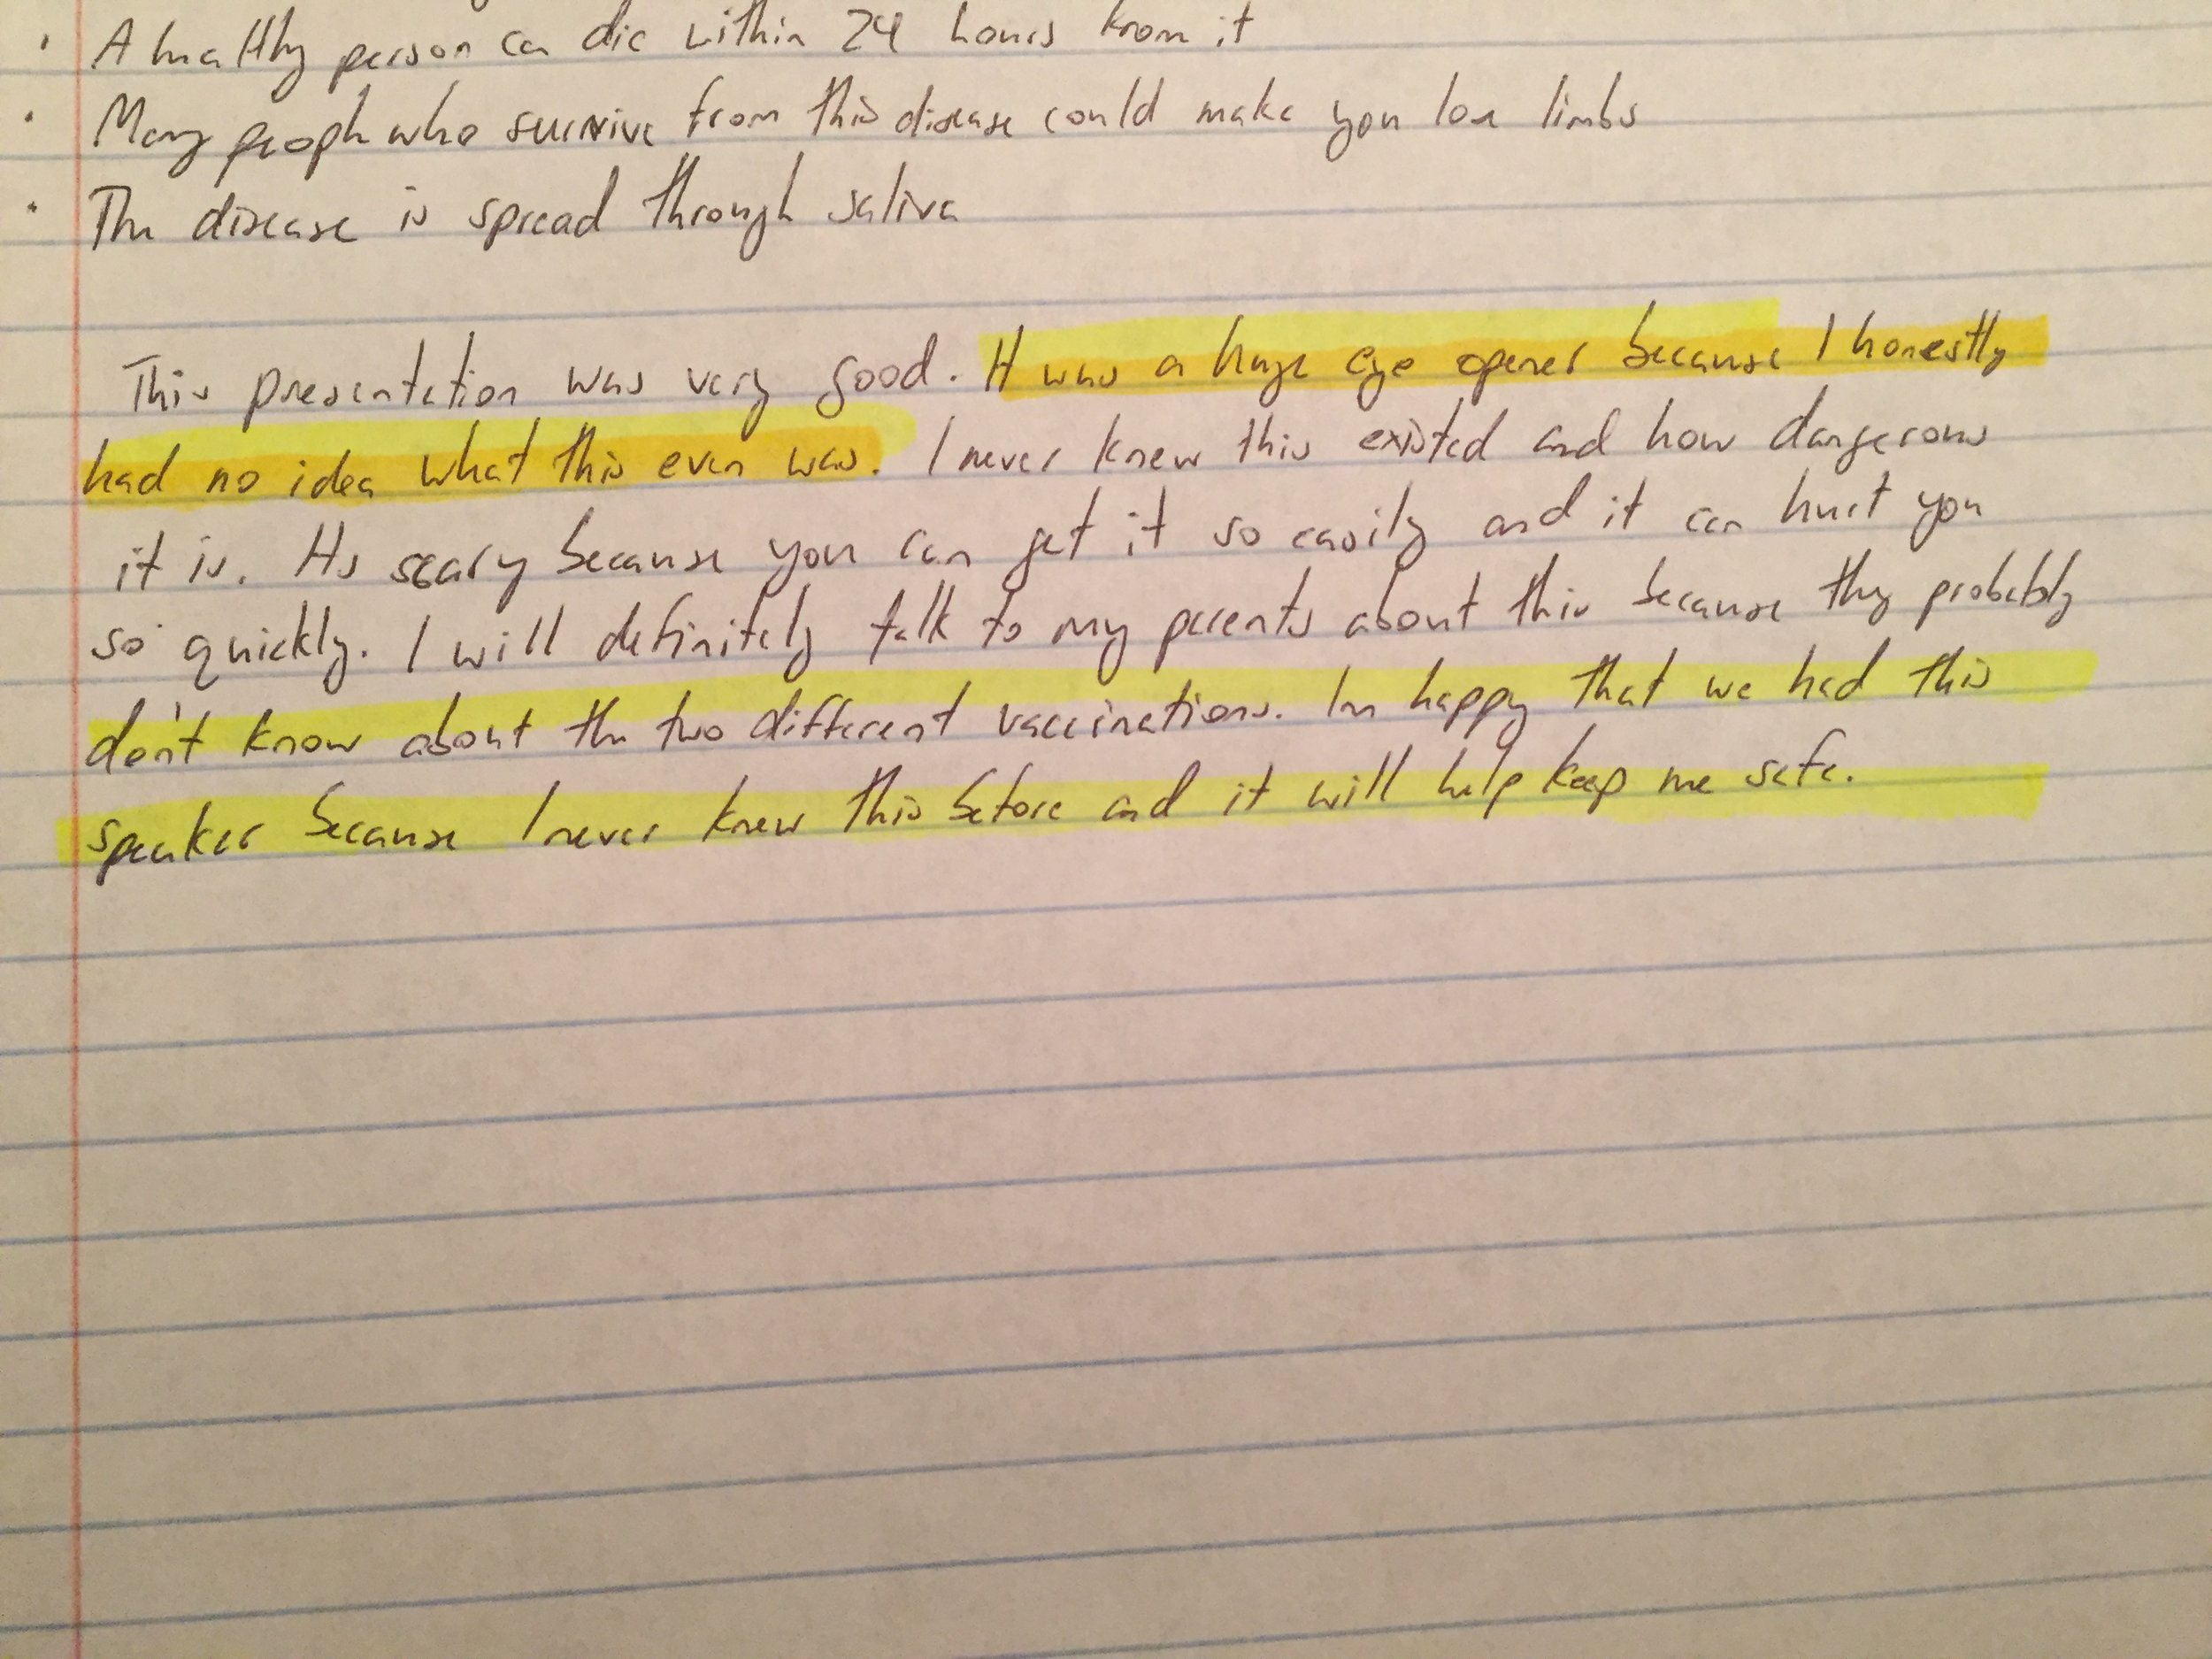 · A healthy person can die within 24 hours from it
· Many people who survive from this disease could make you lose limbs
· The disease is spread through saliva
This presentation was very good. It was a huge eye opener because I honestly
had no idea what this even was. I never knew this existed and how dangerous
it is. Its scary because you can get it so easily and it can hurt you
so quickly. I will definitely talk to my parents about this because they probably
don't know about the two different vaccinations. Im happy that we had this
speaker because I never knew this before and it will help keep me safe.